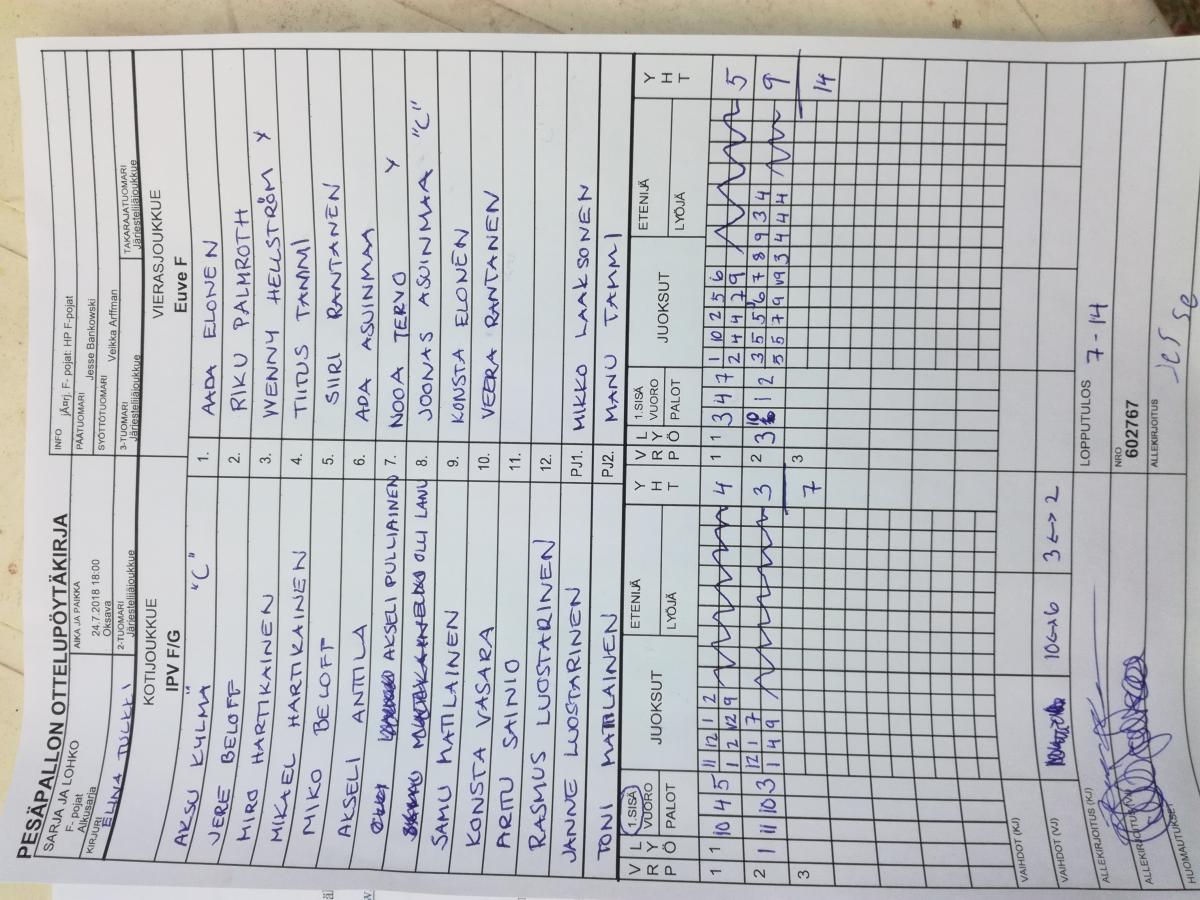 PESÄPALLON OTTELUPÖYTÄKIRJA
SARJA JA LOHKO
F- pojat
Alkusarja
AIKA JA PAIKKA
24.7.2018 18:00
Oksava
INFO jÄ¤rj. F- pojat: HP F-pojat
PÄÄTUOMARI
Jesse Bankowski
SYÖTTÖTUOMARI
Veikka Arffman
KIRJURI
ELINA TULKKI
2-TUOMARI
Järjestelijäjoukkue
3-TUOMARI
Järjestelijäjoukkue
TAKARAJATUOMARI
Järjestelijäjoukkue
KOTIJOUKKUE
IPV F/G
VIERASJOUKKUE
Euve F
AKSU KYLMÄ "C" 1. AADA ELONEN
JERE BELOFF 2. RIKU PALMROTH
MIRO HARTIKAINEN 3. WENNY HELLSTRÖM Y
MIKAEL HARTIKAINEN 4. TIITUS TAMMI
MIKO BELOFF 5. SIIRI RANTANEN
AKSELI ANTTILA 6. ADA ASUINMAA
AKSELI PULLIAINEN 7. NOOA TERVO Y
OLLI LANU 8. JOONAS ASUINMAA "C"
SAMU MATILAINEN 9. KONSTA ELONEN
KONSTA VASARA 10. VEERA RANTANEN
ARTTU SAINIO 11.
RASMUS LUOSTARINEN 12.
JANNE LUOSTARINEN PJ1. MIKKO LAAKSONEN
TONI MATILAINEN PJ2. MANU TAMMI
V R P L Y Ö 1.SISÄ VUORO PALOT JUOKSUT ETENIJÄ LYÖJÄ Y H T
V R P L Y Ö 1.SISÄ VUORO PALOT JUOKSUT ETENIJÄ LYÖJÄ Y H T
1 1 10 4 5 11 12 1 2 4
1 2 12 9
1 1 3 4 7 1 10 2 5 6 5
2 4 4 7 9
2 1 11 10 3 12 1 7 3
1 4 9
2 3 10 1 2 3 5 5 6 7 8 9 3 4 9
5 5 7 9 3 4 4 4
3 7
3 14
VAIHDOT (KJ)
VAIHDOT (VJ) 10<->6 3<->2
ALLEKIRJOITUS (KJ)
LOPPUTULOS 7-14
ALLEKIRJOITUS (VJ)
NRO
602767
HUOMAUTUKSET
ALLEKIRJOITUS